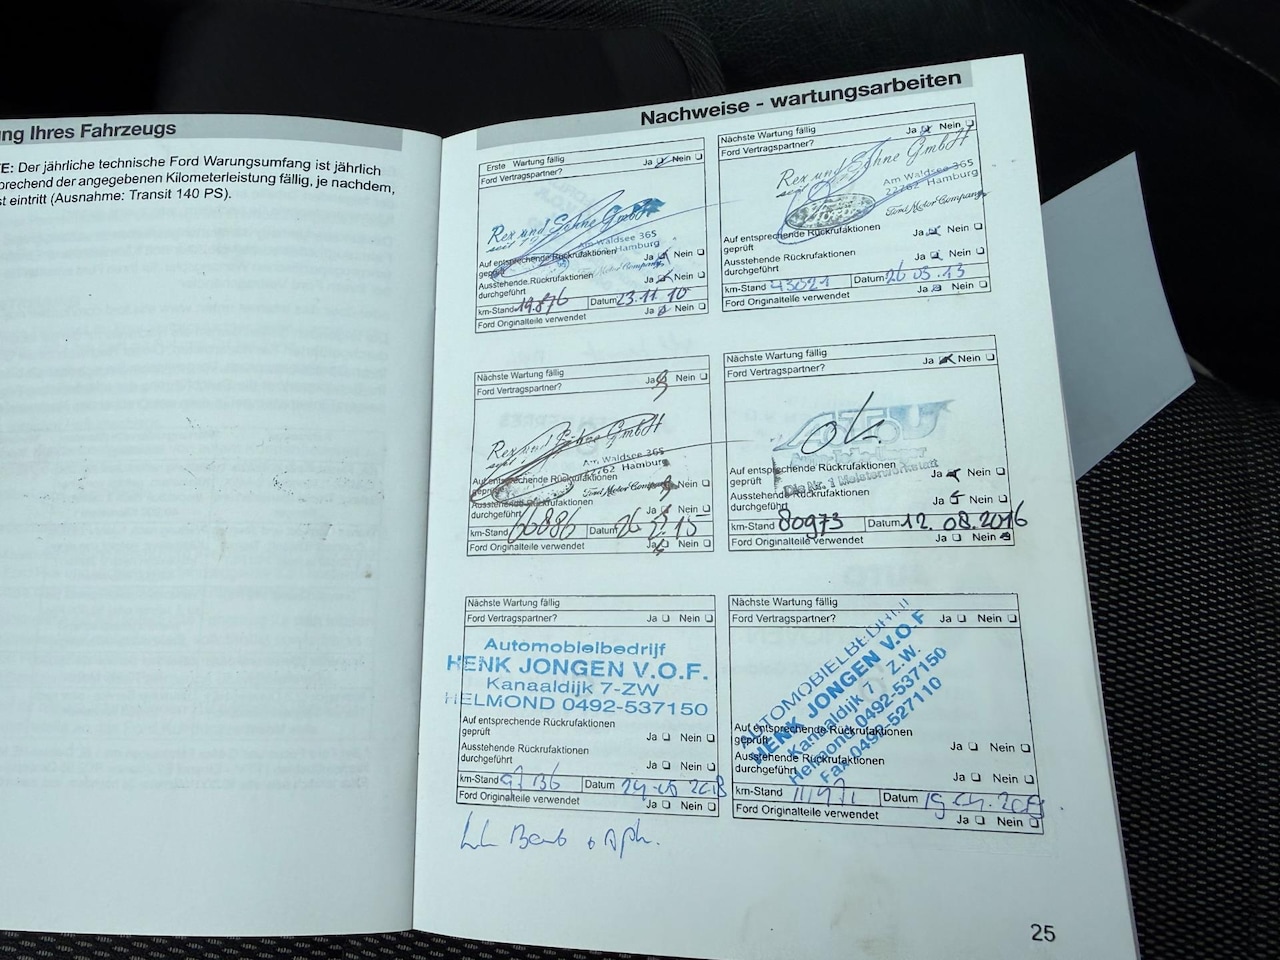 ng Ihres Fahrzeugs
E: Der jährliche technische Ford Warungsumfang ist jährlich
prechend der angegebenen Kilometerleistung fällig, je nachdem,
st eintritt (Ausnahme: Transit 140 PS).
Nachweise - wartungsarbeiten
Erste Wartung fällig
Ford Vertragspartner? Ja Nein
Rex und Söhne GmbH
seit
Am Waldsee 365
Hamburg
Ford Motor Company
Auf entsprechende Rückrufaktionen
geprüft Ja Nein
Ausstehende Rückrufaktionen
durchgeführt Ja Nein
km-Stand 19.876 Datum 23.11.10
Ford Originalteile verwendet Ja Nein
Nächste Wartung fällig
Ford Vertragspartner? Ja Nein
Rex und Söhne GmbH
seit
Am Waldsee 365
22762 Hamburg
Ford Motor Company
Auf entsprechende Rückrufaktionen
geprüft Ja Nein
Ausstehende Rückrufaktionen
durchgeführt Ja Nein
km-Stand 43021 Datum 26 03.13
Ford Originalteile verwendet Ja Nein
Nächste Wartung fällig
Ford Vertragspartner? Ja Nein
Rex und Söhne GmbH
seit
Am Waldsee 365
22762 Hamburg
Ford Motor Company
Auf entsprechende Rückrufaktionen
geprüft
Ausstehende Rückrufaktionen
durchgeführt Ja Nein
km-Stand 66886 Datum 26 15
Ford Originalteile verwendet Ja Nein
Nächste Wartung fällig
Ford Vertragspartner? Ja Nein
ATU
Die Nr. 1 Meisterwerkstatt
Auf entsprechende Rückrufaktionen
geprüft Ja Nein
Ausstehende Rückrufaktionen
durchgeführt Ja Nein
km-Stand 80973 Datum 12.08.2016
Ford Originalteile verwendet Ja Nein
Nächste Wartung fällig
Ford Vertragspartner? Ja Nein
Automobielbedrijf
HENK JONGEN V.O.F.
Kanaaldijk 7-ZW
HELMOND 0492-537150
Auf entsprechende Rückrufaktionen
geprüft Ja Nein
Ausstehende Rückrufaktionen
durchgeführt Ja Nein
km-Stand 97136 Datum 24-05 2018
Ford Originalteile verwendet Ja Nein
Nächste Wartung fällig
Ford Vertragspartner? Ja Nein
AUTOMOBIELBEDRIJF
HENK JONGEN V.O.F
Kanaaldijk 7 Z.W.
Helmond 0492-537150
Fax 0492-527110
Auf entsprechende Rückrufaktionen
geprüft Ja Nein
Ausstehende Rückrufaktionen
durchgeführt Ja Nein
km-Stand Datum
Ford Originalteile verwendet Ja Nein
25